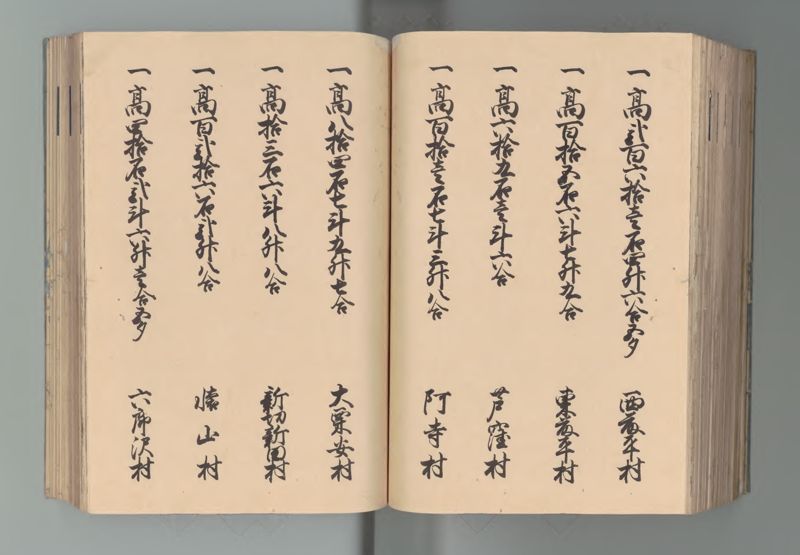 一高弐百六拾壱石四升六合五夕 西葛平村
一高百拾五石六斗七升九合 東葛平村
一高六拾五石壱斗六合 芦窪村
一高百拾壱石七斗三升八合 阿寺村
一高八拾四石七斗九升七合 大粟安村
一高拾三石六斗八升八合 新切新田村
一高百弐拾六石弐升八合 懐山村
一高四拾石弐斗六升壱合五夕 六郎沢村